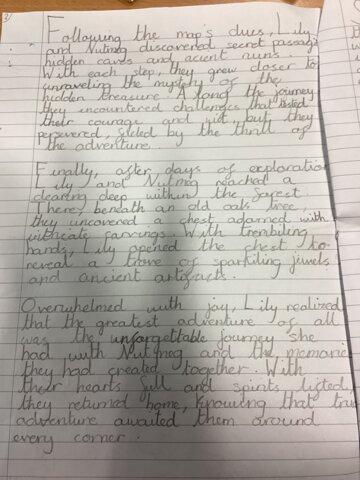 Following the map's clues, Lily
and Nutmeg discovered secret passag
hidden caves and acient ruins.
With each step, they grew closer to
unraveling the mystery of the
hidden treasure. A long the journey
they encountered challenges that tested
their courage and wit, but they
persevered, fueled by the thrill of
the adventure.
Finally, after days of exploration
Lily and Nutmeg reached a
clearing deep within the forest.
There, beneath an old oak tree,
they uncovered a chest adorned with
intricate carvings. With trembling
hands, Lily opened the chest to
reveal a trove of sparkling jewels
and ancient artifacts.
Overwhelmed with joy, Lily realized
that the greatest adventure of all
was the unforgettable journey she
had with Nutmeg and the memorie
they had created together. With
their hearts full and spirits lifted,
they returned home, knowing that tru
adventure awaited them around
every corner.